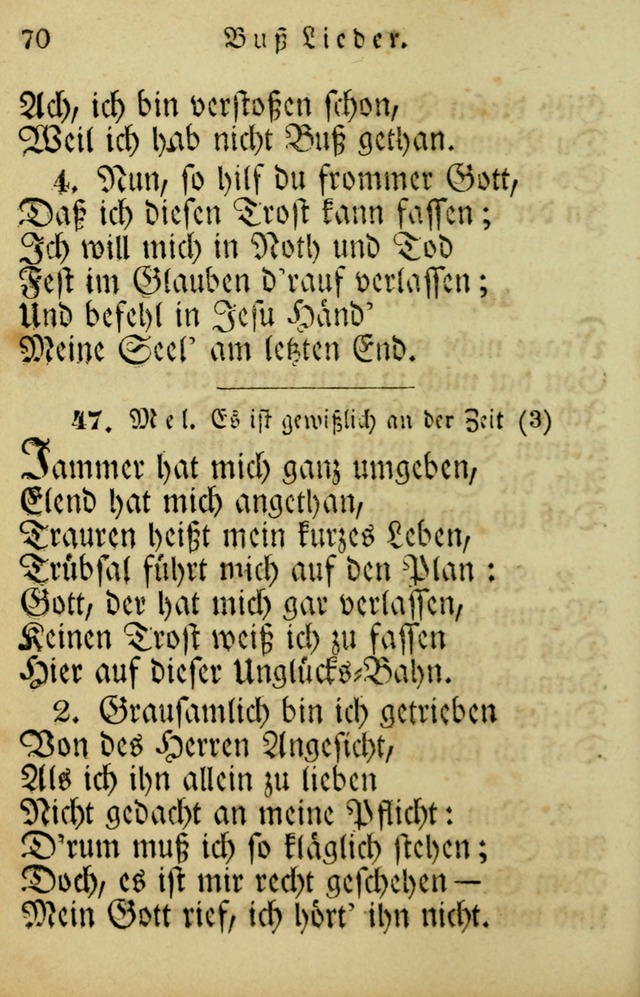 70 Buß Lieder.
Ach, ich bin verstoßen schon,
Weil ich hab nicht Buß gethan.
4. Nun, so hilf du frommer Gott,
Daß ich diesen Trost kann fassen;
Ich will mich in Noth und Tod
Fest im Glauben d'rauf verlassen;
Und befehl in Jesu Händ'
Meine Seel' am letzten End.
47. Mel. Es ist gewißlich an der Zeit (3)
Jammer hat mich ganz umgeben,
Elend hat mich angethan,
Trauren heißt mein kurzes Leben,
Trübsal führt mich auf den Plan:
Gott, der hat mich gar verlassen,
Keinen Trost weiß ich zu fassen
Hier auf dieser Unglücks-Bahn.
2. Grausamlich bin ich getrieben
Von des Herren Angesicht,
Als ich ihn allein zu lieben
Nicht gedacht an meine Pflicht:
D'rum muß ich so kläglich stehen;
Doch, es ist mir recht geschehen—
Mein Gott rief, ich hört' ihn nicht.